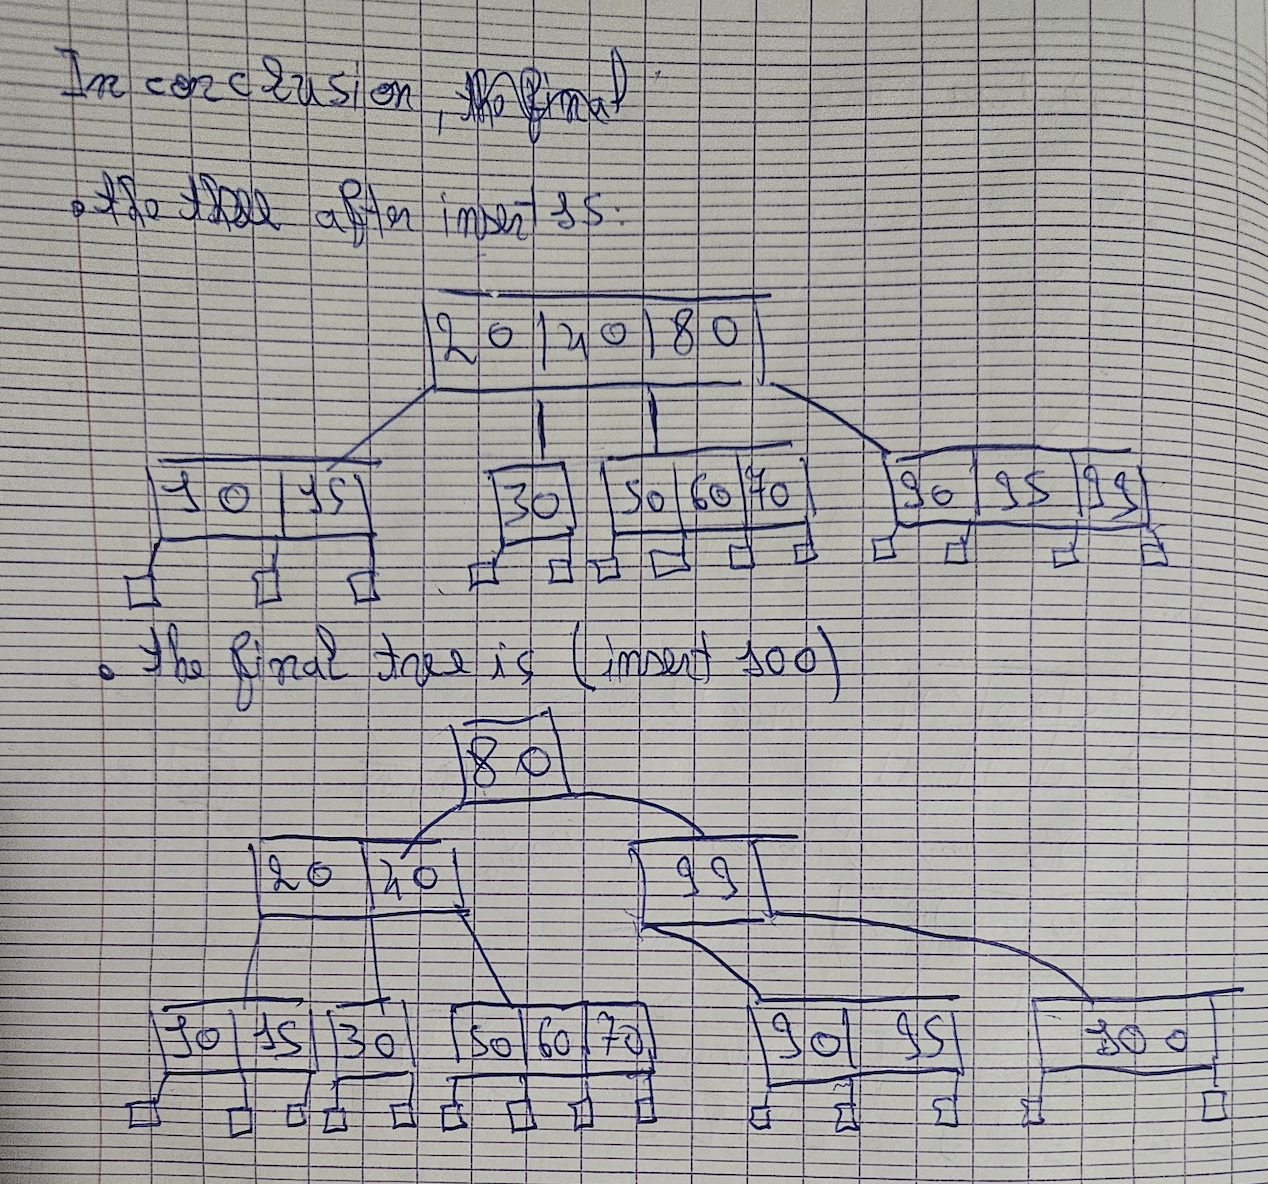 In conclusion, the final
• the tree after insert 15:
20 | 40 | 80
10 | 15 30 50 | 60 | 70 90 | 95 | 99
• the final tree is (insert 100)
80
20 | 40 99
10 | 15 30 50 | 60 | 70 90 | 95 100